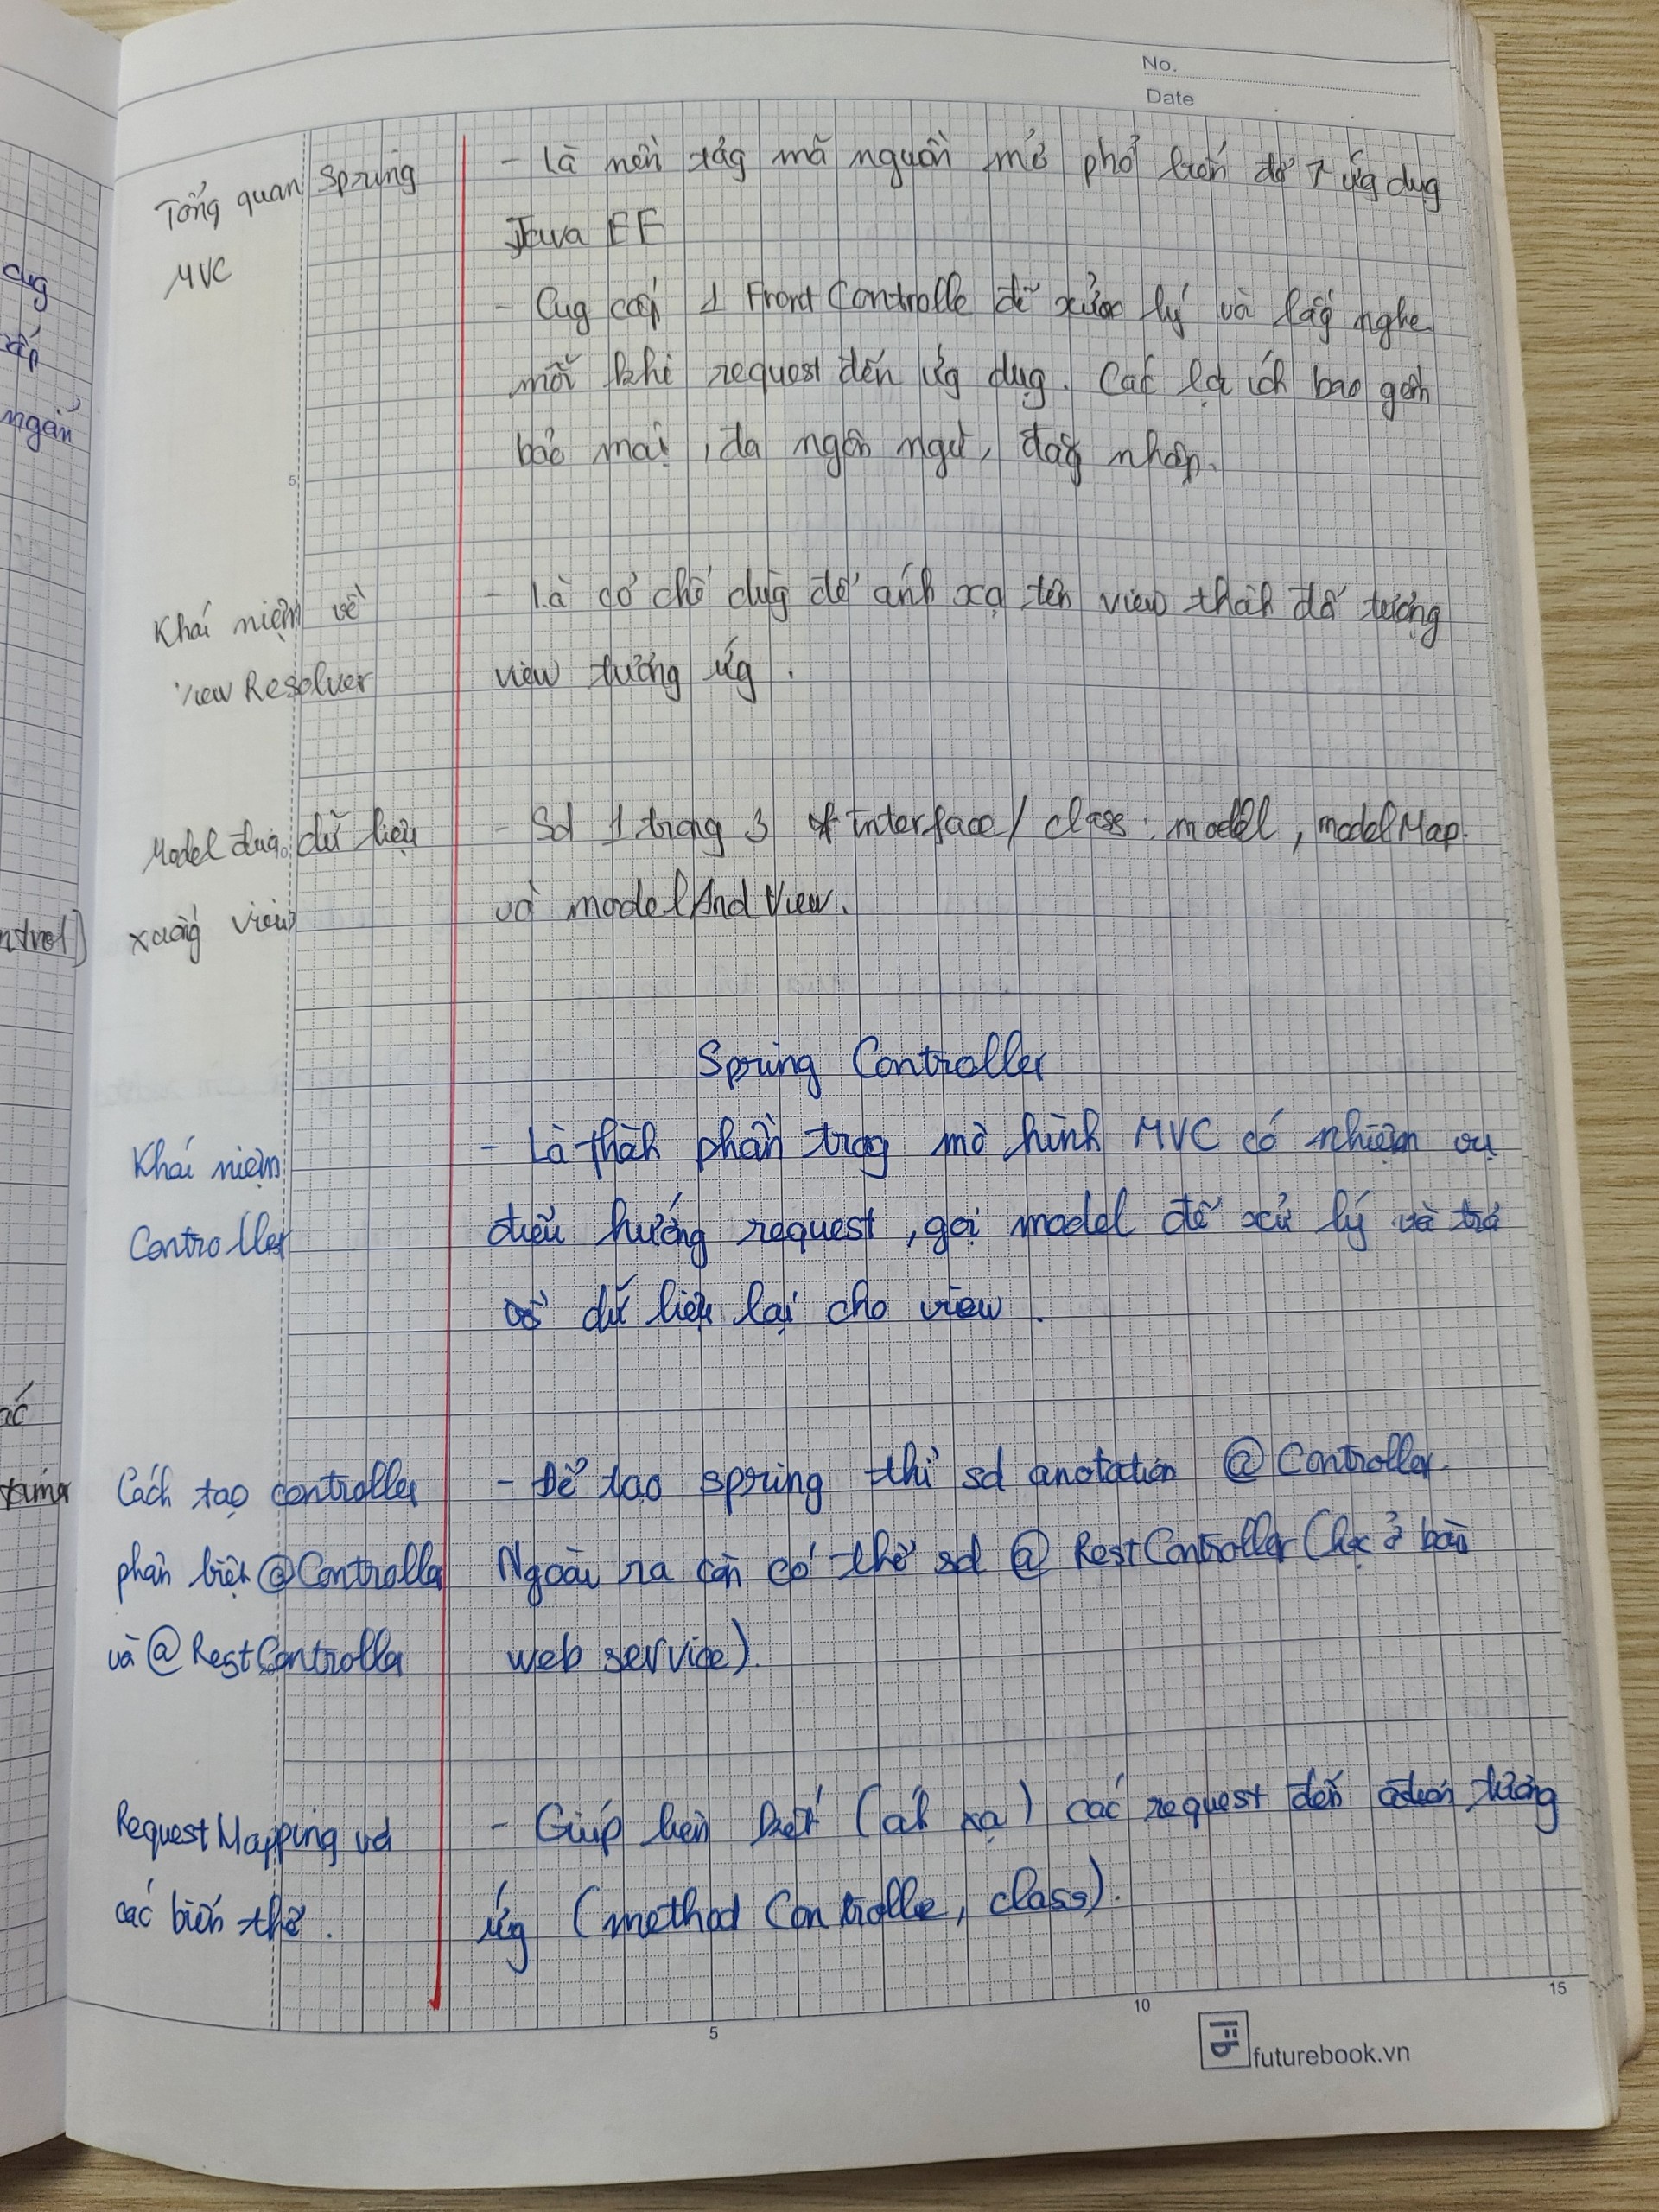 No.
Date
Tổng quan Spring
MVC
- Là nền tảg mã nguồn mở phổ biến để ↗ ứg dụg
Java EE
- Cug cấp 1 Front Controlle để xử lý và lắg nghe
mỗi khi request đến ứg dụg. Các lợi ích bao gồm
bảo mật, đa ngôn ngữ, đăg nhập.
Khái niệm về
View Resolver
- Là cơ chế dùg để ánh xạ tên view thàh đối tượng
view tương ứg.
Model đưa dữ liệu
xuống view
- Sd 1 trong 3 interface/ class: model, modelMap.
và modelAndView.
Spring Controller
Khái niệm
Controller
- Là thàh phần trog mô hình MVC có nhiệm vụ
điều hướng request, gọi model để xử lý và trả
về dữ liệu lại cho view.
Cách tạo controller
phân biệt @Controller
và @RestController
- Để tạo spring thì sd anotation @Controller.
Ngoài ra còn có thể sd @RestController (học ở bài
web service).
Request Mapping và
các biến thể.
- Giúp liên kết (áh xạ) các request đến tương
ứg (method Controlle, class).
cug
cấp
ngắn
ntrol)
ác
5
5
10
15
futurebook.vn